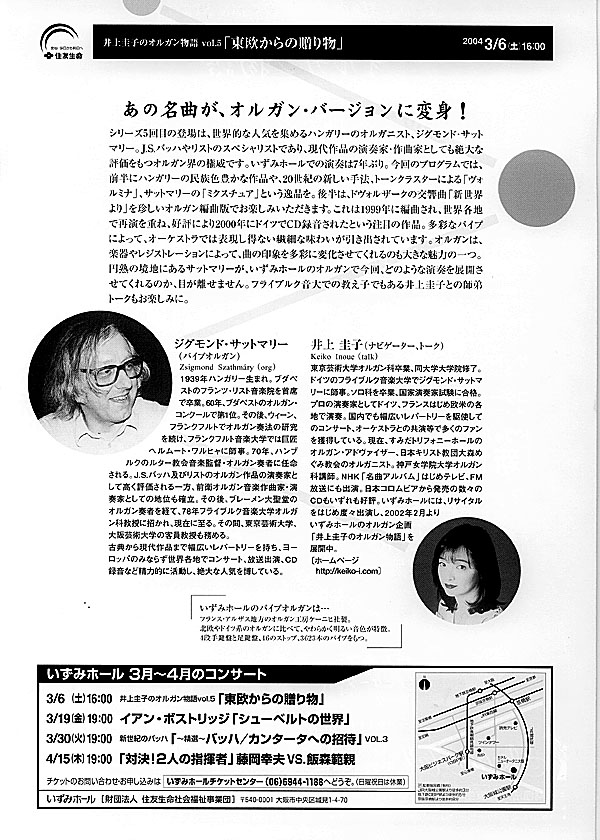 住友生命
井上圭子のオルガン物語 vol.5「東欧からの贈り物」
2004 3/6(土)16:00
あの名曲が、オルガン・バージョンに変身！
シリーズ5回目の登場は、世界的な人気を集めるハンガリーのオルガニスト、ジグモンド・サット
マリー。J.S.バッハやリストのスペシャリストであり、現代作品の演奏家・作曲家としても絶大な
評価をもつオルガン界の権威です。いずみホールでの演奏は7年ぶり。今回のプログラムでは、
前半にハンガリーの民族色豊かな作品や、20世紀の新しい手法、トーンクラスターによる「ヴォ
ルミナ」、サットマリーの「ミクスチュア」という逸品を。後半は、ドヴォルザークの交響曲「新世界
より」を珍しいオルガン編曲版でお楽しみいただきます。これは1999年に編曲され、世界各地
で再演を重ね、好評により2000年にドイツでCD録音されたという注目の作品。多彩なパイプ
によって、オーケストラでは表現し得ない繊細な味わいが引き出されています。オルガンは、
楽器やレジストレーションによって、曲の印象を多彩に変化させてくれるのも大きな魅力の一つ。
円熟の境地にあるサットマリーが、いずみホールのオルガンで今回、どのような演奏を展開さ
せてくれるのか、目が離せません。フライブルク音大での教え子でもある井上圭子との師弟
トークもお楽しみに。
ジグモンド・サットマリー
(パイプオルガン)
Zsigmond Szathmáry (org)
1939年ハンガリー生まれ。ブダペ
ストのフランツ・リスト音楽院を首席
で卒業。60年、ブダペストのオルガン・
コンクールで第1位。その後、ウィーン、
フランクフルトでオルガン奏法の研究
を続け、フランクフルト音楽大学では巨匠
ヘルムート・ワルヒャに師事。70年、ハン
ブルクのルター教会音楽監督・オルガン奏者に任命
される。J.S.バッハ及びリストのオルガン作品の演奏家と
して高く評価される一方、前衛オルガン音楽作曲家・演
奏家としての地位も確立。その後、ブレーメン大聖堂の
オルガン奏者を経て、78年フライブルク音楽大学オルガ
ン科教授に招かれ、現在に至る。その間、東京芸術大学、
大阪芸術大学の客員教授も務める。
古典から現代作品まで幅広いレパートリーを持ち、ヨー
ロッパのみならず世界各地でコンサート、放送出演、CD
録音など精力的に活動し、絶大な人気を博している。
井上 圭子(ナビゲーター、トーク)
Keiko Inoue (talk)
東京芸術大学オルガン科卒業、同大学大学院修了。
ドイツのフライブルク音楽大学でジグモンド・サットマ
リーに師事。ソロ科を卒業、国家演奏家試験に合格。
プロの演奏家としてドイツ、フランスはじめ欧米の各
地で演奏。国内でも幅広いレパートリーを駆使して
のコンサート、オーケストラとの共演等で多くのファン
を獲得している。現在、すみだトリフォニーホールの
オルガン・アドヴァイザー、日本キリスト教団大森め
ぐみ教会のオルガニスト。神戸女学院大学オルガン
科講師。NHK「名曲アルバム」はじめテレビ、FM
放送にも出演。日本コロムビアから発売の数々の
CDもいずれも好評。いずみホールには、リサイタル
をはじめ度々出演し、2002年2月より
いずみホールのオルガン企画
「井上圭子のオルガン物語」を
展開中。
[ホームページ
http://keiko-i.com]
いずみホールのパイプオルガンは…
フランス・アルザス地方のオルガン工房ケーニヒ社製。
北欧やドイツ系のオルガンに比べて、やわらかく明るい音色が特徴。
4段手鍵盤と足鍵盤、46のストップ、3623本のパイプをもつ。
いずみホール 3月〜4月のコンサート
3/6 (土)16:00 井上圭子のオルガン物語vol.5「東欧からの贈り物」
3/19(金)19:00 イアン・ボストリッジ「シューベルトの世界」
3/30(火)19:00 新世紀のバッハ「〜精選〜」バッハ/カンタータへの招待」VOL.3
4/15(木)19:00 「対決！2人の指揮者」藤岡幸夫VS.飯森範親
チケットのお問い合わせ・お申し込みは いずみホールチケットセンター(06)6944-1188へどうぞ。(日曜祝日は休業)
いずみホール [財団法人 住友生命社会福祉事業団] 〒540-0001 大阪市中央区城見1-4-70
大阪ビジネスパーク駅
ツイン21
いずみホール
大阪城公園駅